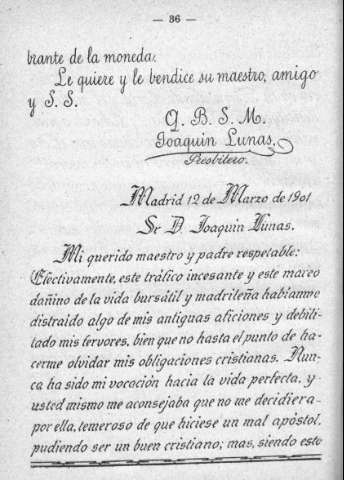 — 36 —
brante de la moneda.
Le quiere y le bendice su maestro, amigo
y S. S.
Q. B. S. M.
Joaquin Lunas.
Presbítero.
Madrid 12 de Marzo de 1901
Sr D. Joaquin Lunas.
Mi querido maestro y padre respetable:
Efectivamente, este tráfico incesante y este mareo
dañino de la vida bursátil y madrileña habíanme
distraido algo de mis antiguas aficiones y debili-
tado mis fervores, bien que no hasta el punto de ha-
cerme olvidar mis obligaciones cristianas. Nun-
ca ha sido mi vococión hacia la vida perfecta, y
usted mismo me aconsejaba que no me decidiera
por ella, temeroso de que hiciese un mal apóstol,
pudiendo ser un buen cristiano; mas, siendo esto